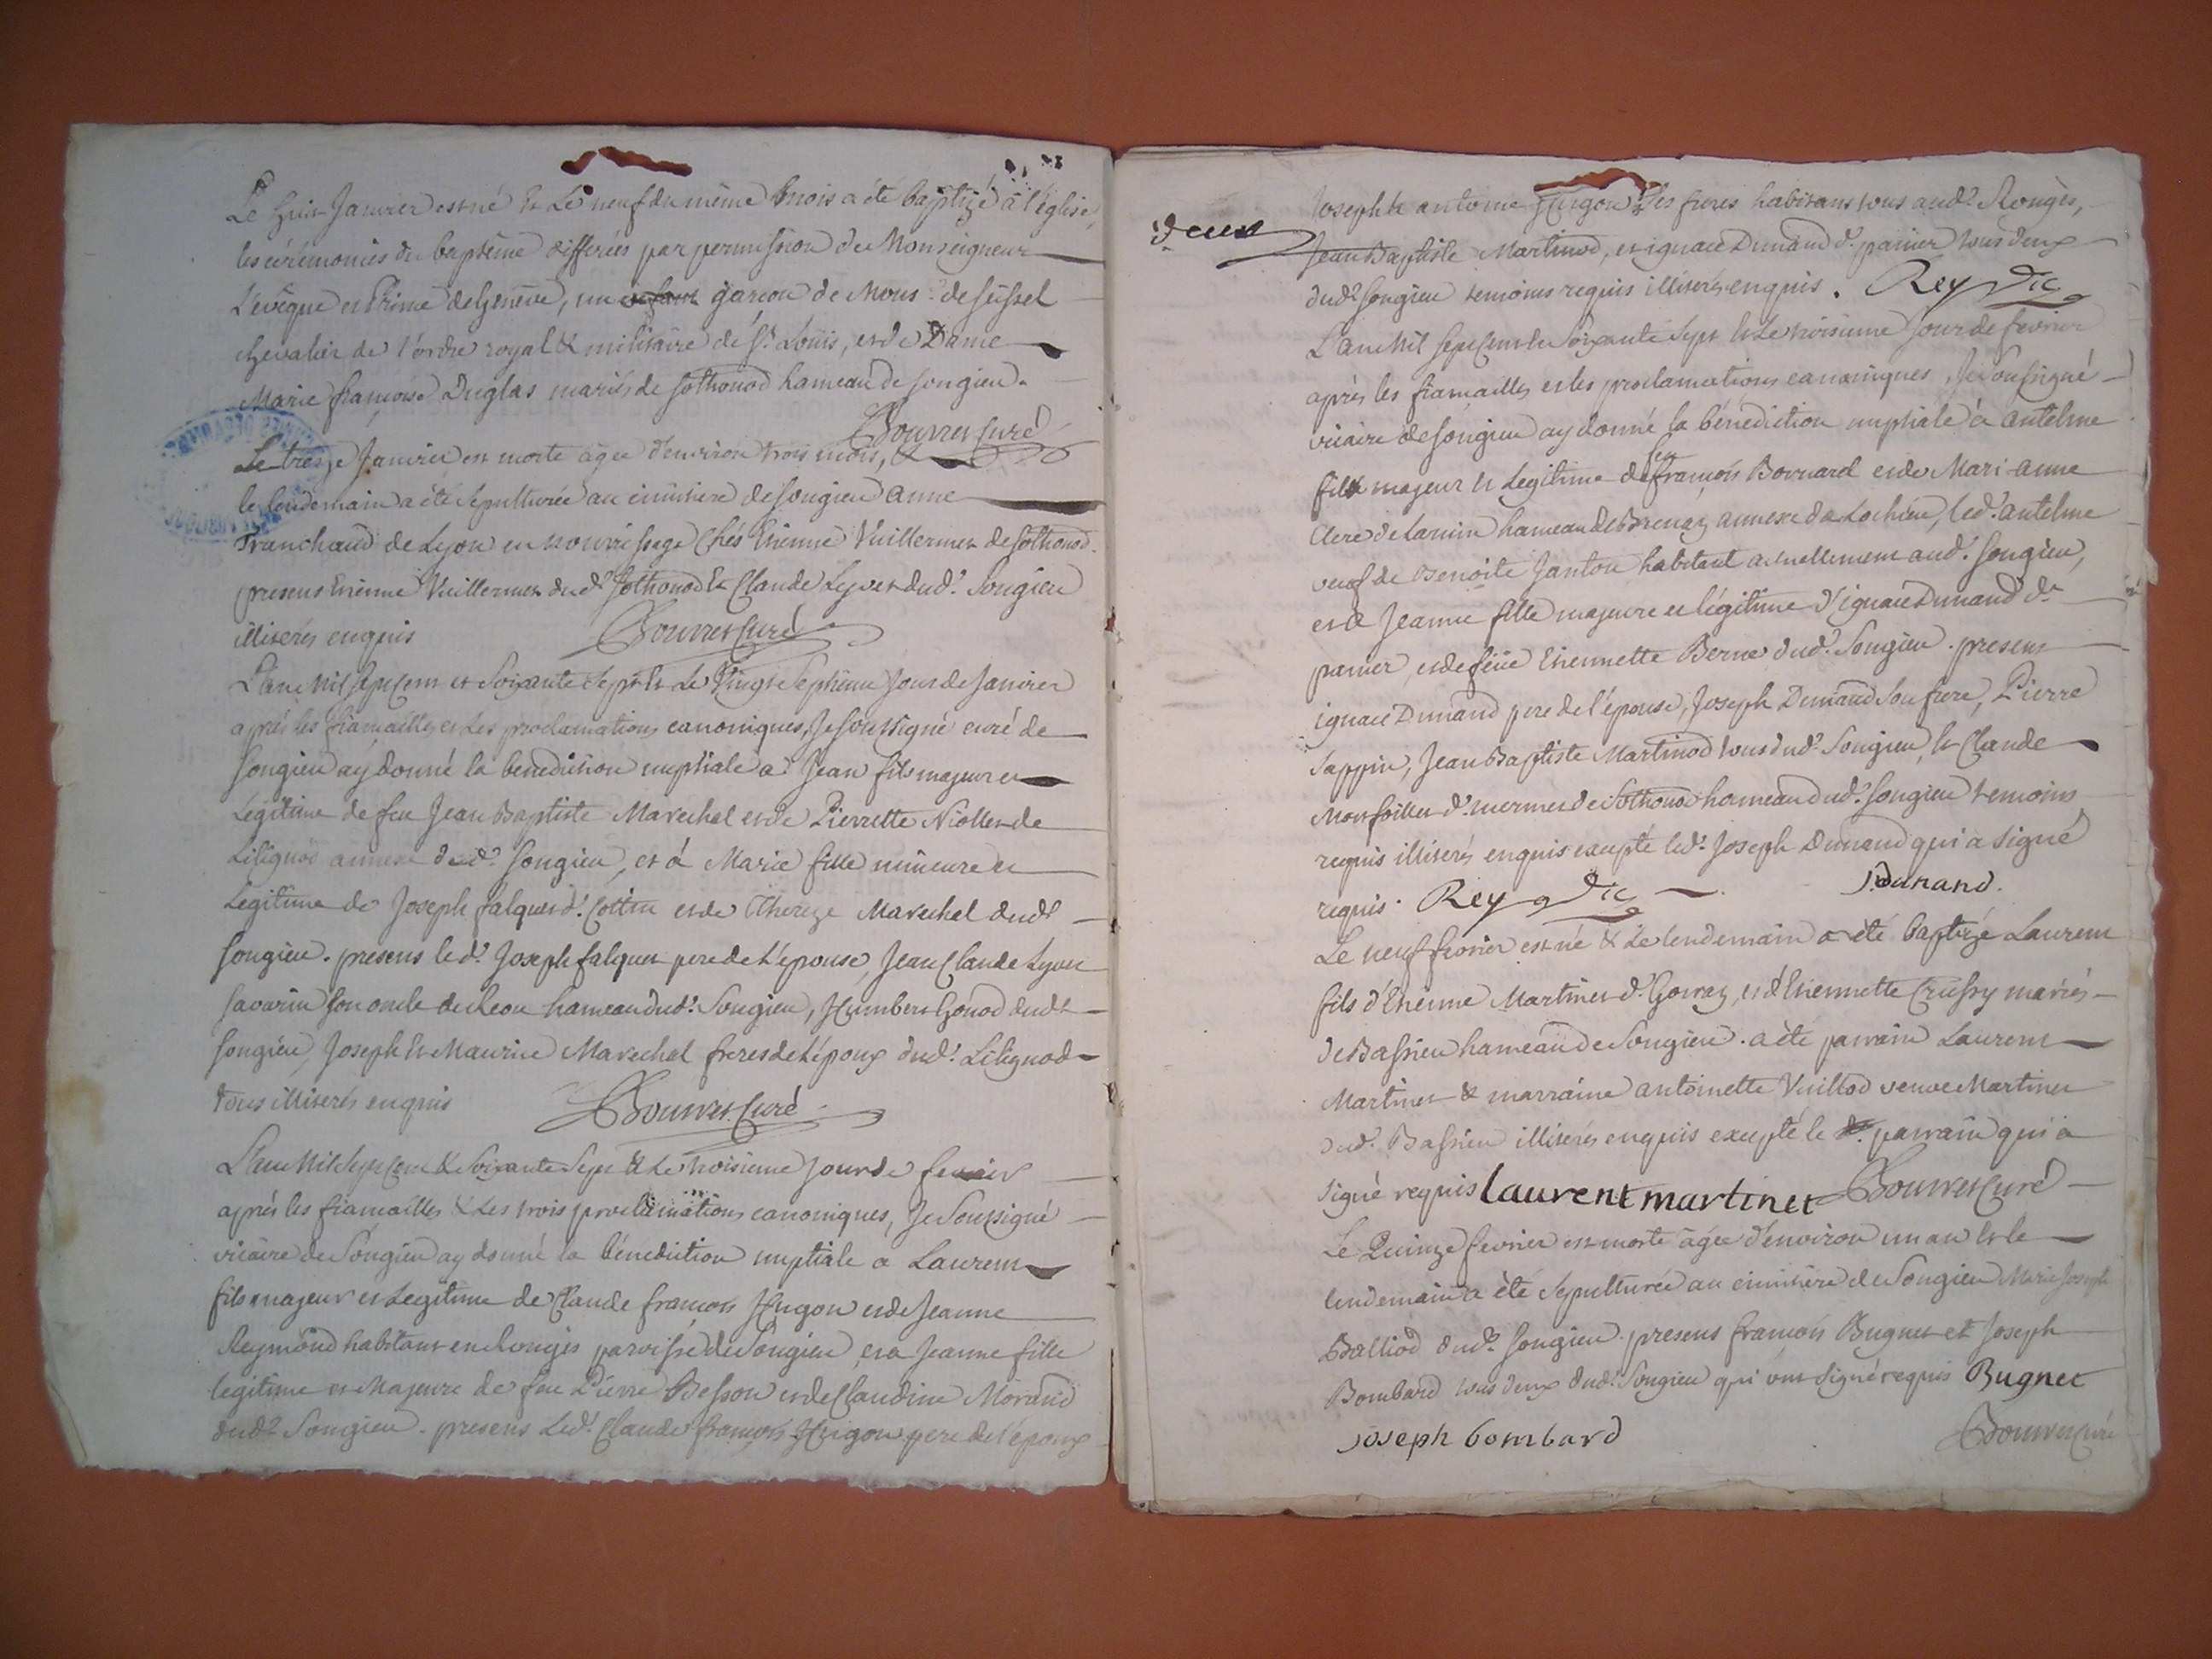 Le huit Janvier est né & Le neuf du même mois a été baptizé à l'église,
les cérémonies du baptême differées par permission de Monseigneur
L'evêque et Prince de Genève, un garcon de Mons.r de seissel
chevalier de l'ordre royal & militaire de S.t Louis, et de Dame
Marie françoise Duglas mariés de sothonod hameau de songieu.
Bouvret Curé
Le treize Janvier est morte agée d'environ trois mois, &
le lendemain a été sepulturée au cimitiere de songieu anne
Tranchaud de Lyon en nourrissage chés Etienne Vuillermet de sothonod.
presens Etienne Vuillermet dud.t Sothonod & Claude Lyvet dud.t Songieu
illiterés enquis Bouvret Curé
L'an Mil sept cent et Soixante Sept & Le Vingt Septieme Jour de Janvier
après les fiançailles et Les proclamations canoniques, Je soussigné curé de
songieu ay donné la benediction nuptiale a Jean fils majeur et
Légitime de feu Jean Baptiste Marechal et de Pierrette Niollet de
Lilignod annexe dud.t songieu, et à Marie fille mineure et
Legitime de Joseph falquet d.t Cottin et de Thereze Marechal dud.t
songieu. presens led.t Joseph falquet pere de L'épouse, Jean Claude Lyvet
savarin son oncle de hameau dud.t Songieu, Humbert Gonod dud.t
songieu, Joseph & Maurice Marechal freres de L'époux dud.t Lilignod
tous illiterés enquis Bouvret Curé
L'an Mil Sept Cent & Soixante Sept & Le troisieme Jour de fevrier
après les fiançailles & Les trois proclamations canoniques, Je Soussigné
vicaire de Songieu ay donné la bénédiction nuptiale a Laurent
fils majeur et Legitime de Claude françois Hugon et de Jeanne
Reymond habitant en Rongés paroisse de Songieu, et a Jeanne fille
legitime et Majeure de feu Pierre Besson et de Claudine Morand
dud.t Songieu. presens Led.t Claude françois Hugon pere de l'époux
deux
Joseph & antoine Hugon ses freres habitans tous aud.t Rongés,
Jean Baptiste Martinod, et ignace Dunand d.t panier tous deux
dud.t songieu temoins requis illiterés enquis. Rey vic
L'an Mil sept cent & soixante sept & Le troisieme Jour de fevrier
après les fiançailles et les proclamations canoniques, Je Soussigné
vicaire de songieu ay donné la bénédiction nuptiale à antelme
fils majeur & Legitime de feu françois Bornard et de Mari-anne
Clerc de hameau de Brenaz annexe de Lochieu, led.t antelme
veuf de Benoite Janton habitant actuellement aud.t songieu,
et a Jeanne fille majeure et légitime d'ignace Dunand d.t
panier, et de feüe Etiennette Berne dud.t Songieu. presens
ignace Dunand pere de l'épouse, Joseph Dunand Son frere, Pierre
Sappin, Jean Baptiste Martinod tous dud.t Songieu, & Claude
Montfillet d.t mermet de Sothonod hameau dud.t songieu temoins
requis illiterés enquis excepté led.t Joseph Dunand qui a signé
requis. Rey vic J.dunand.
Le neuf fevrier est né & Le lendemain a été baptizé Laurent
fils d'Etienne Martinet d.t Gorraz, et d'Etiennette Crussy mariés
de Bassieu hameau de Songieu. a été parrain Laurent
Martinet & marraine antoinette Vuillod veuve Martinet
dud.t Bassieu illiterés enquis excepté le parrain qui a
signé requis laurent martinet Bouvret Curé
Le Quinze fevrier est morte agée d'environ un an & le
lendemain a été sepulturée au cimitière de Songieu Marie Joseph
Balliod dud.t songieu. presens françois Bugnet et Joseph
Bombard tous deux dud.t Songieu qui ont signé requis Bugnet
joseph bombard Bouvret Curé